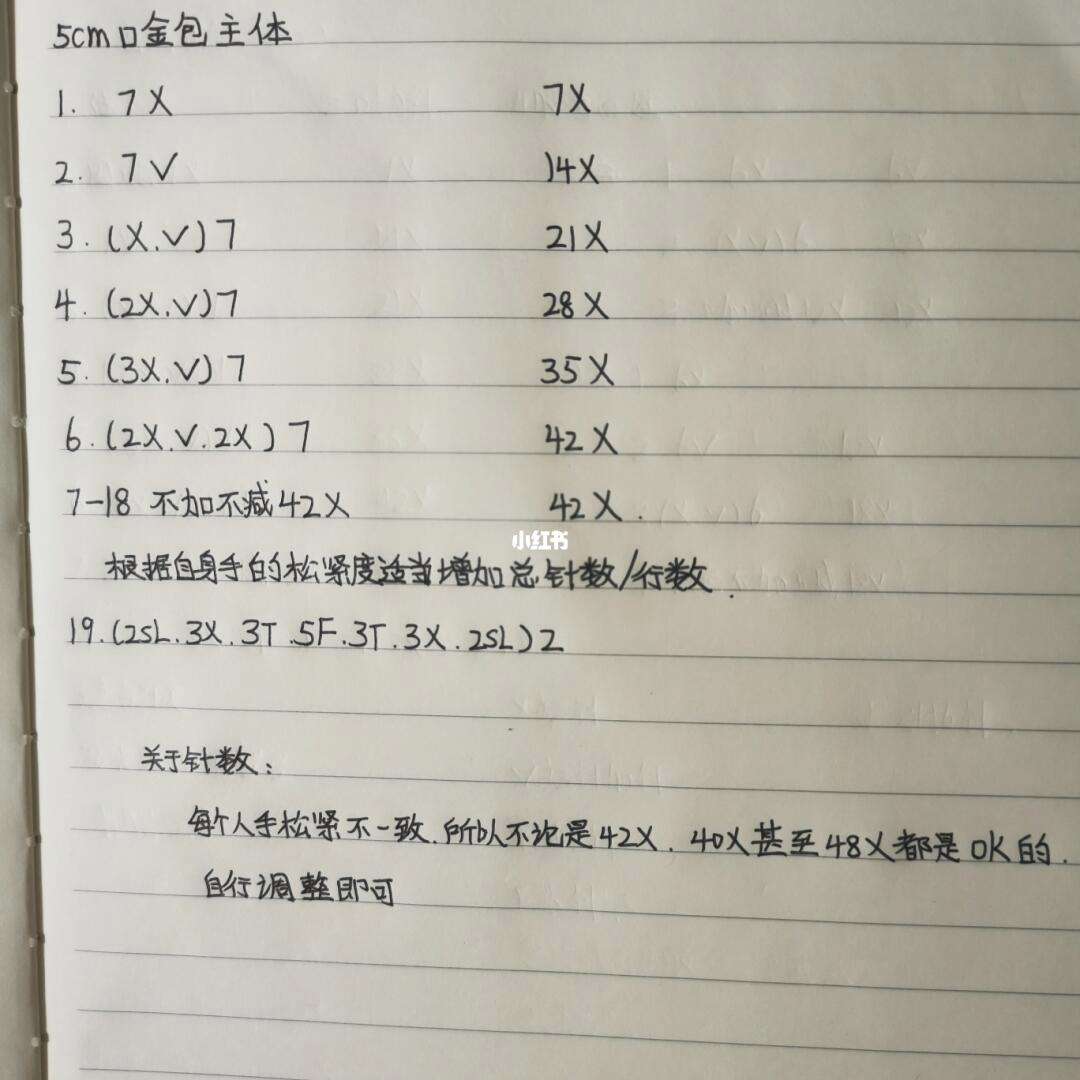 5cm口金包主体
1. 7X 7X
2. 7V 14X
3. (X.V)7 21X
4. (2X.V)7 28X
5. (3X.V)7 35X
6. (2X.V.2X)7 42X
7-18 不加不减42X 42X.
小红书
根据自身手的松紧度适当增加总针数/行数.
19.(2SL.3X.3T.5F.3T.3X.2SL)2
关于针数:
每个人手松紧不一致.所以不论是42X.40X甚至48X都是OK的.
自行调整即可